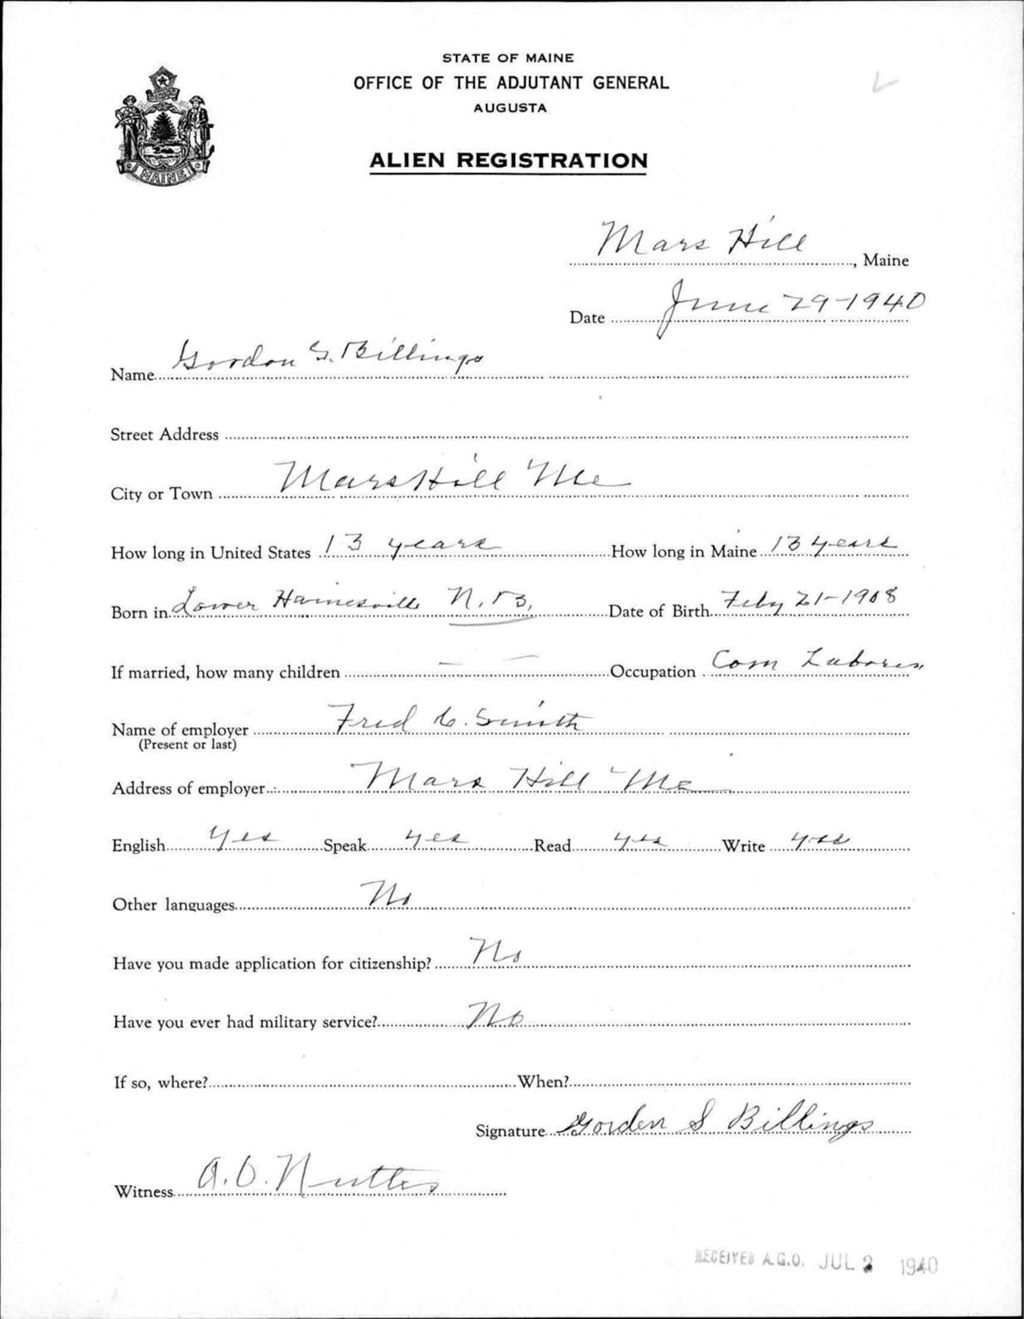 STATE OF MAINE
OFFICE OF THE ADJUTANT GENERAL
AUGUSTA
MAINE
ALIEN REGISTRATION
Mars Hill, Maine
Date June 29-1940
Name Gordon S. Billings
Street Address
City or Town Mars Hill Me
How long in United States 13 years How long in Maine 13 years
Born in Lower Hainesville N.B. Date of Birth Feby 21-1908
If married, how many children — — Occupation Com Laborer
Name of employer Fred C. Smith
(Present or last)
Address of employer Mars Hill Me
English Yes Speak yes Read yes Write yes
Other languages No
Have you made application for citizenship? No
Have you ever had military service? No
If so, where? When?
Signature Gorden S Billings
Witness A.O.
RECEIVED A.G.O. JUL 2 1940